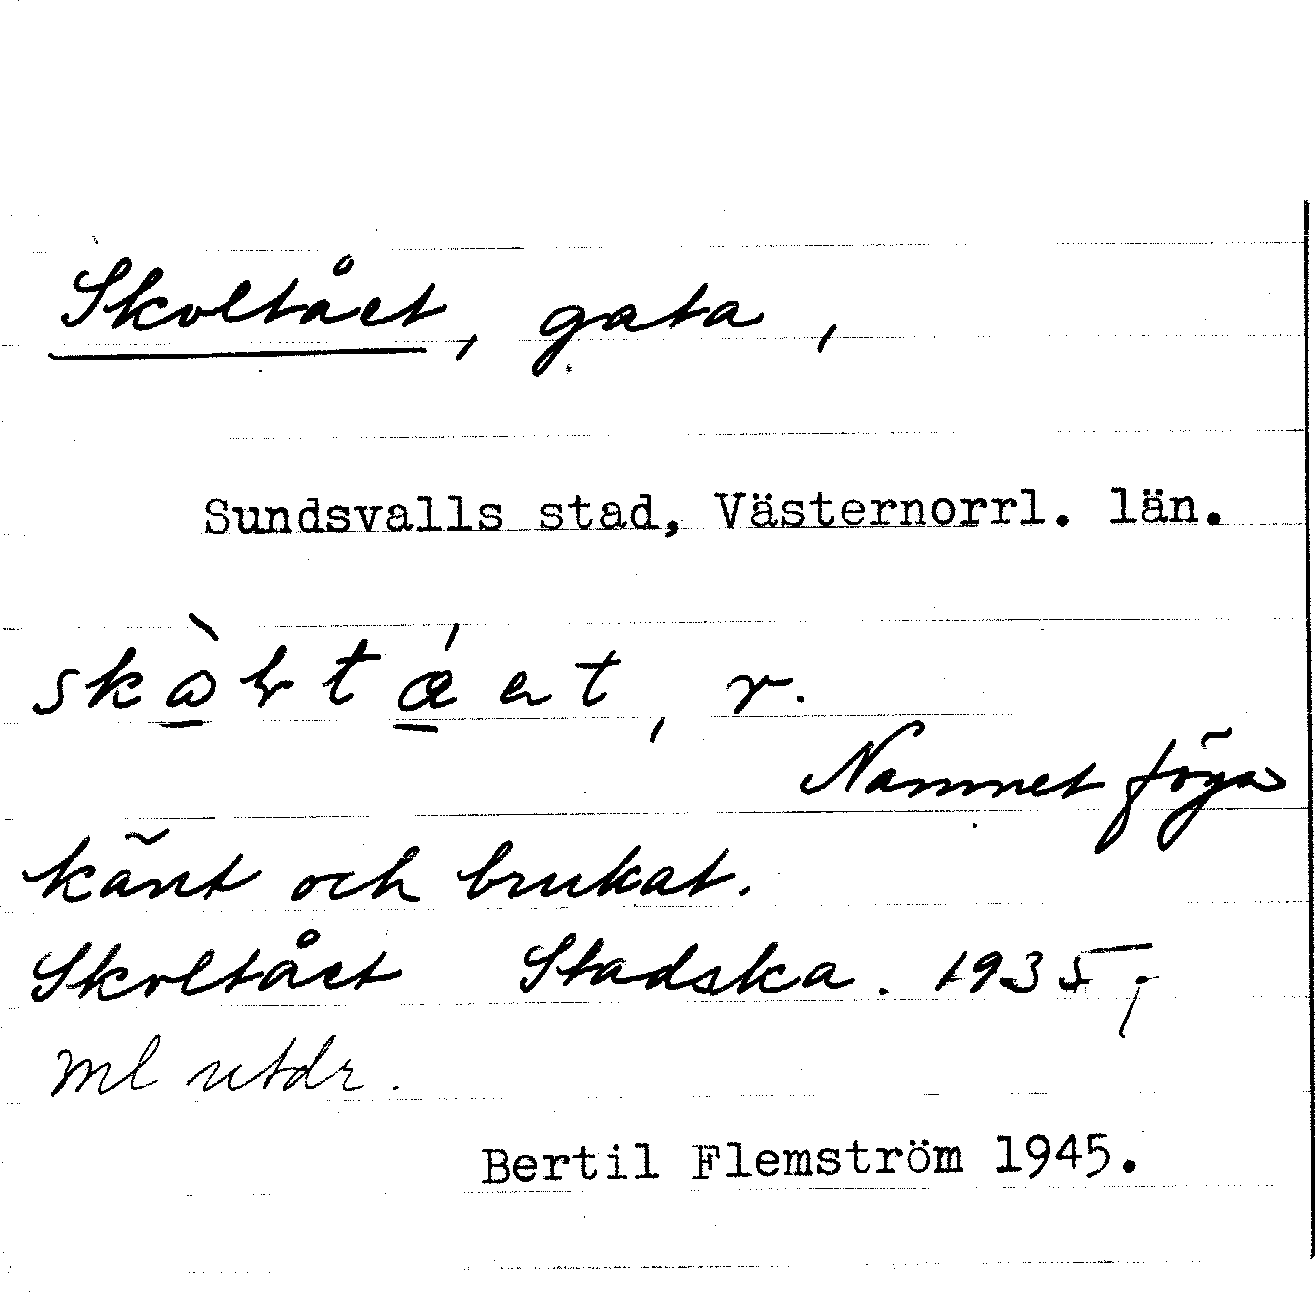 Skoltået, gata,
Sundsvalls stad, Västernorrl. län.
r.
Namnet föga
känt och brukat.
Skoltået Stadska. 1935;
ml utdr.
Bertil Flemström 1945.